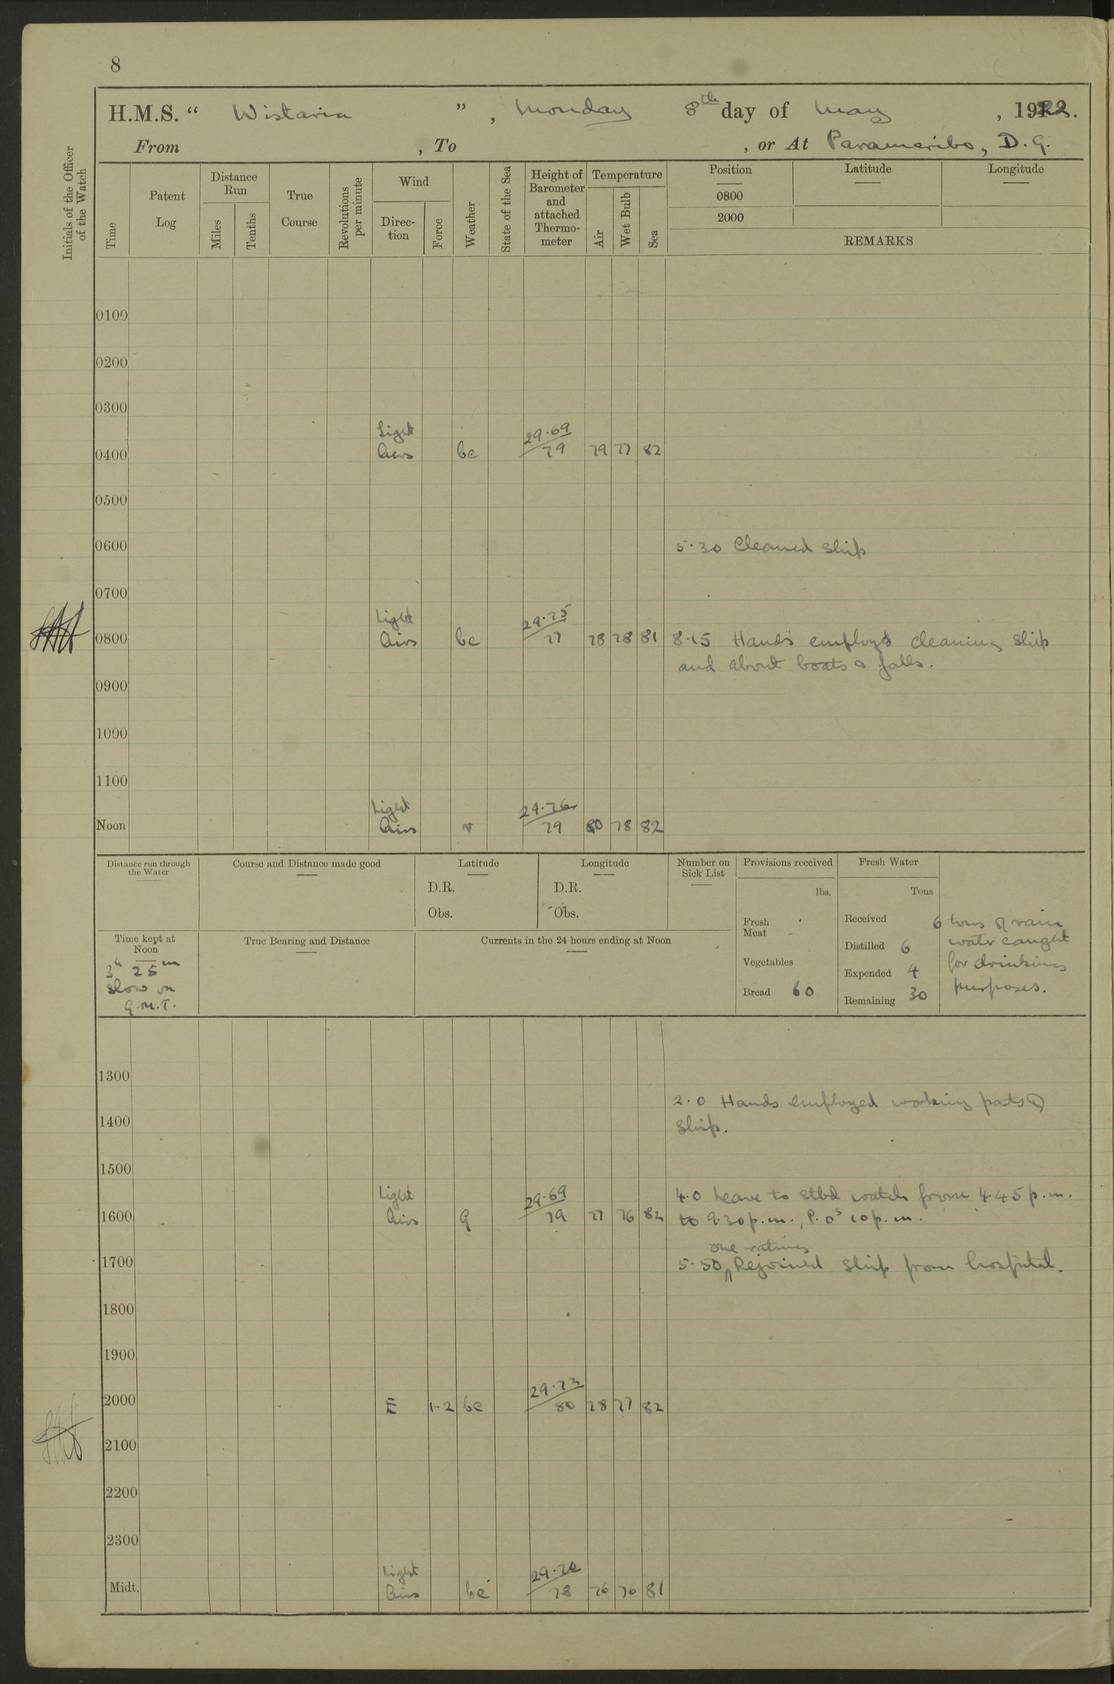 8
H.M.S. “ Wistaria ”, Monday 8th day of May, 1922.
From , To , or At Paramaribo, D.G.
Initials of the Officer of the Watch
Time
Patent Log
Distance Run
Miles
Tenths
True Course
Revolutions per minute
Wind
Direc-tion
Force
Weather
State of the Sea
Height of Barometer and attached Thermo-meter
Temperature
Air
Wet Bulb
Sea
Position
Latitude
Longitude
0800
2000
REMARKS
0100
0200
0300
0400 Light Airs bc 29.69 79 79 77 82
0500
0600 5.30 Cleaned ship
0700
0800 Light Airs bc 29.75 77 78 78 81 8.15 Hands employd cleaning ship
and about boats & falls.
0900
1000
1100
Noon Light Airs r 29.76 79 80 78 82
Distance run through the Water
Course and Distance made good
Latitude
D.R.
Obs.
Longitude
D.R.
Obs.
Number on Sick List
Provisions received
lbs.
Fresh Meat
Vegetables
Bread 60
Fresh Water
Tons
Received
Distilled 6
Expended 4
Remaining 30
6 tons of rain
water caught
for drinking
purposes.
Time kept at Noon
3h 25m
slow on
G.M.T.
True Bearing and Distance
Currents in the 24 hours ending at Noon
1300
2.0 Hands employed working parts of
1400 ship.
1500
4.0 Leave to stbd watch from 4.45 p.m.
1600 Light Airs q 29.69 79 77 76 82 to 9.30 p.m., P.Os 10 p.m.
one rating
1700 5.50 Rejoined ship from hospital.
1800
1900
2000 E 1-2 bc 29.73 80 78 77 82
2100
2200
2300
Midt. Light Airs bc 29.70 78 76 76 81